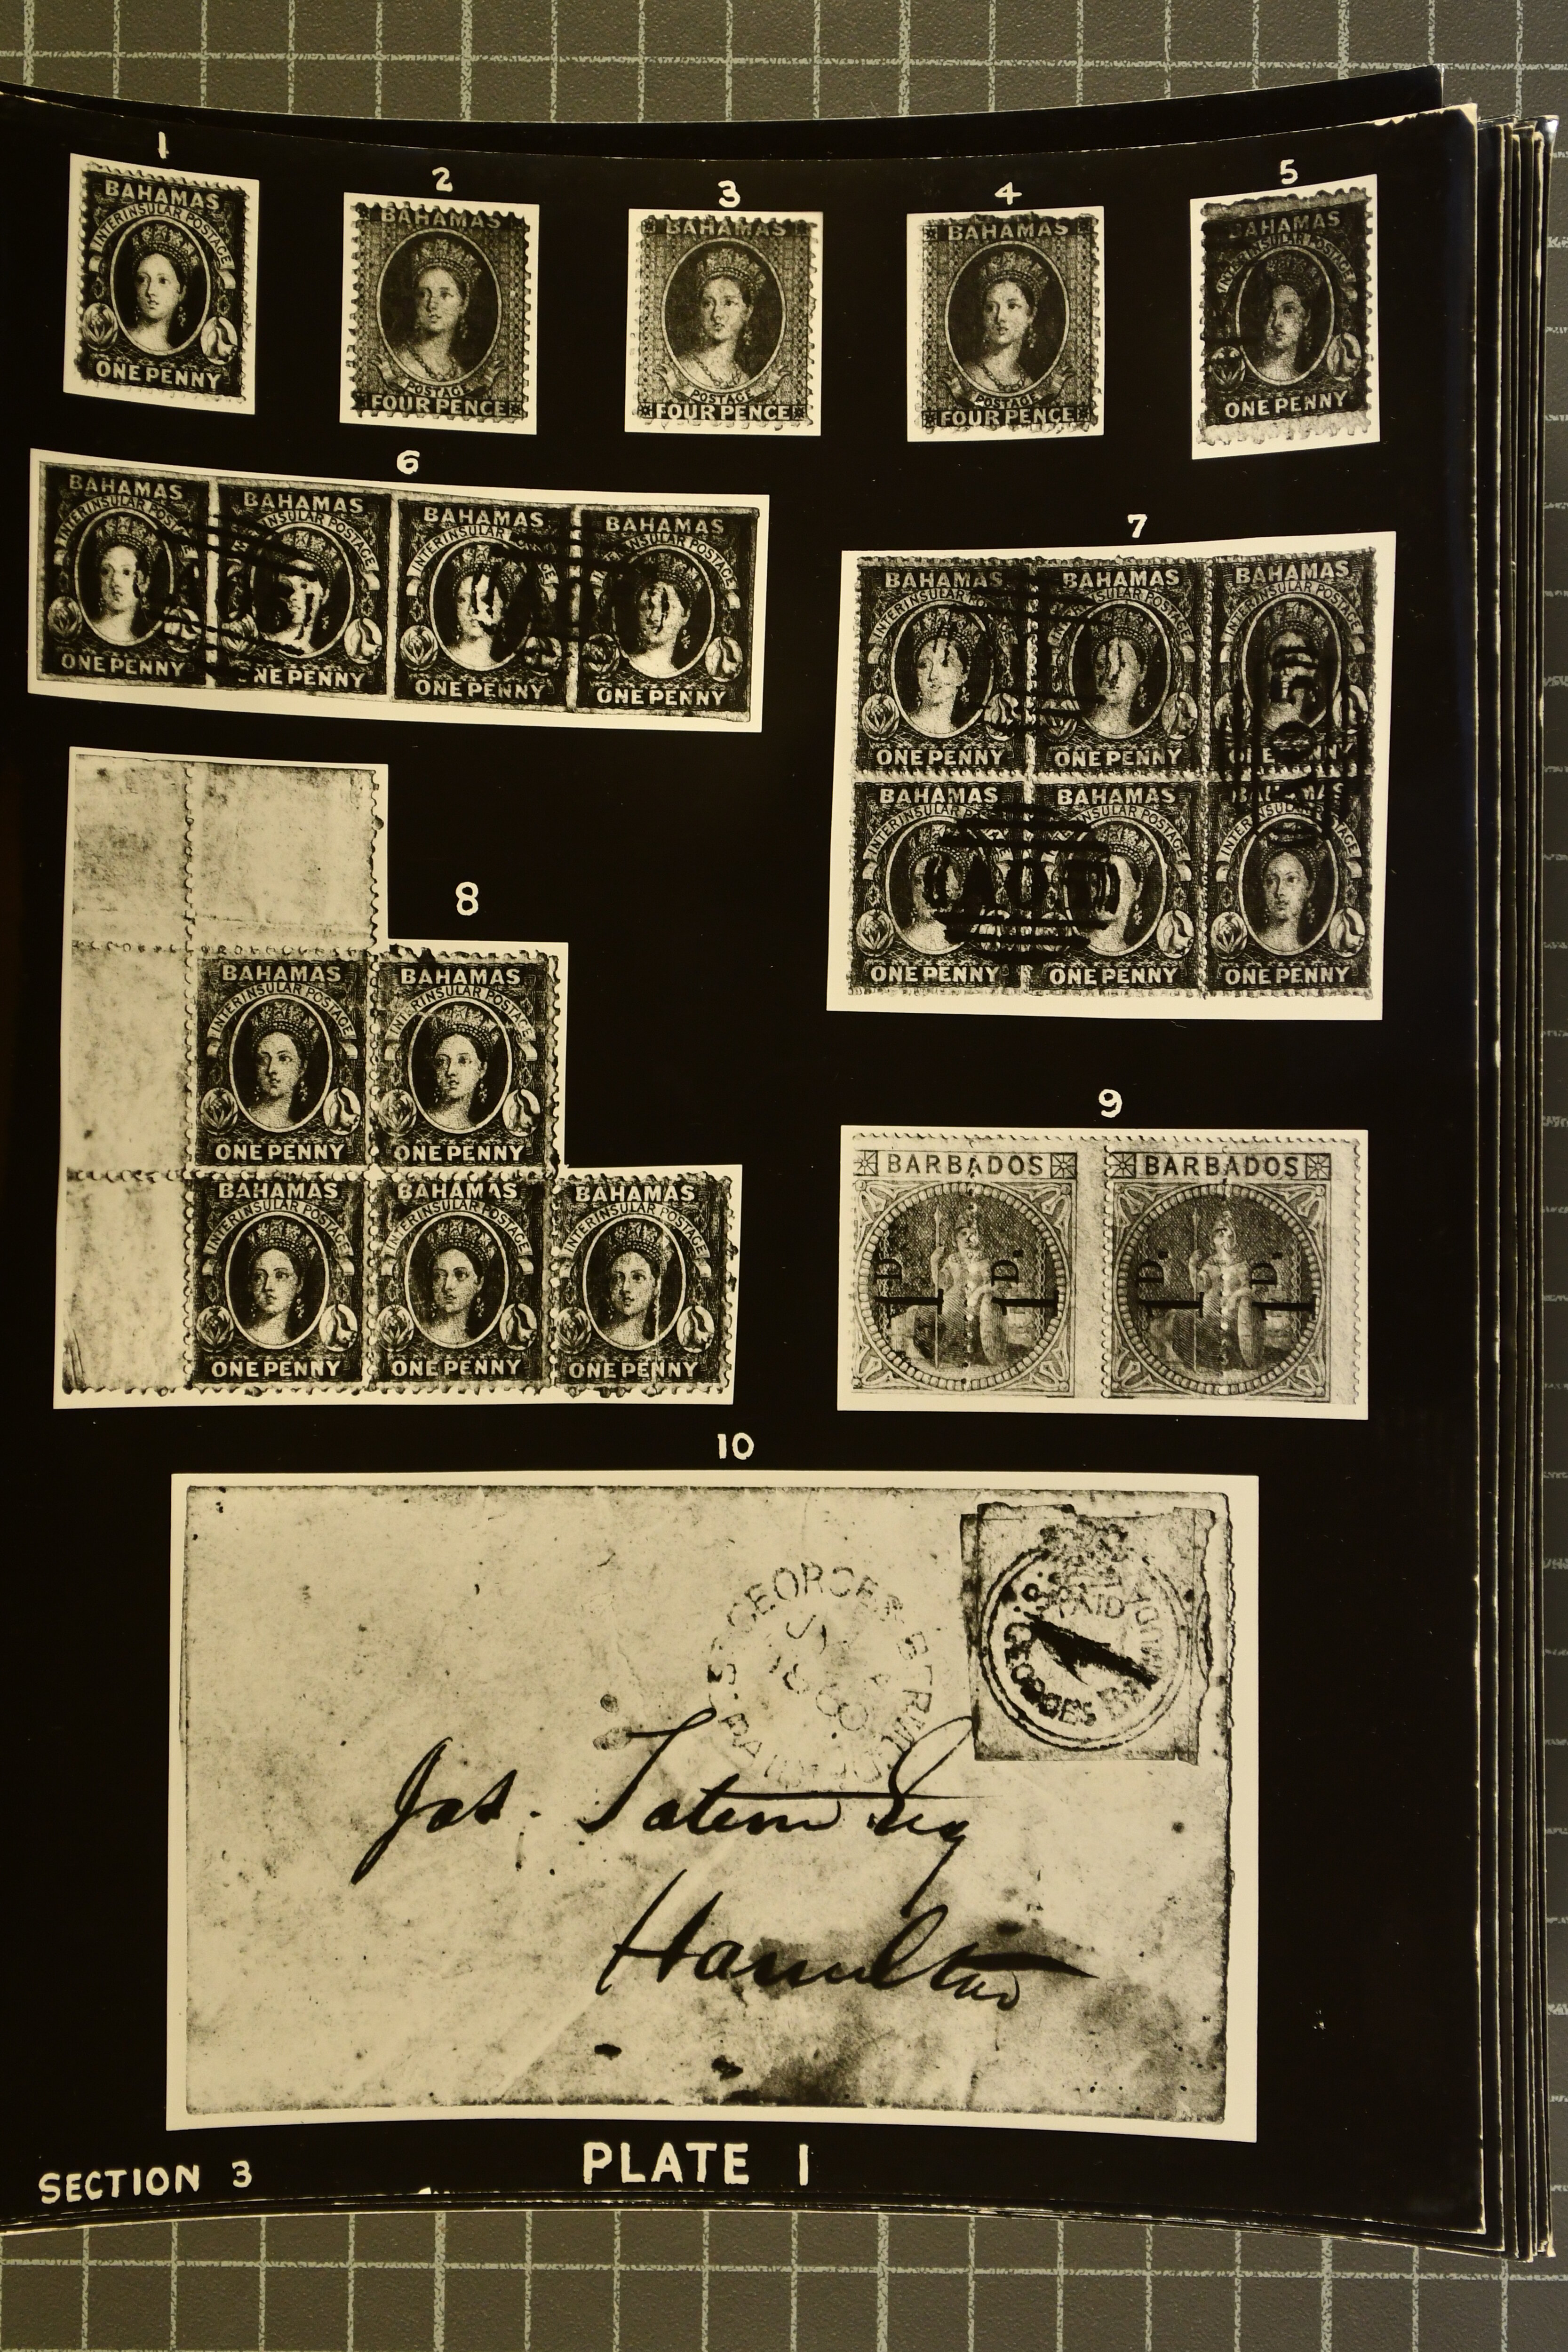 1
BAHAMAS
INTERINSULAR POSTAGE
ONE PENNY
2
BAHAMAS
POSTAGE
FOUR PENCE
3
BAHAMAS
POSTAGE
FOUR PENCE
4
BAHAMAS
POSTAGE
FOUR PENCE
5
BAHAMAS
POSTAGE
ONE PENNY
6
BAHAMAS BAHAMAS BAHAMAS BAHAMAS
INTERINSULAR POSTAGE INSULAR POSTAGE INTERINSULAR INSULAR POSTAGE
ONE PENNY NE PENNY ONE PENNY ONE PENNY
7
BAHAMAS BAHAMAS BAHAMAS
INTERINSULAR INSULAR POSTAGE INTERINSULAR POSTAGE
ONE PENNY ONE PENNY
BAHAMAS BAHAMAS BAHAMAS
A05
ONE PENNY ONE PENNY ONE PENNY
8
BAHAMAS BAHAMAS
INTERINSULAR POSTAGE INTERINSULAR POSTAGE
ONE PENNY ONE PENNY
BAHAMAS BAHAMAS BAHAMAS
INTERINSULAR POSTAGE INTERINSULAR POSTAGE INTERINSULAR POSTAGE
ONE PENNY ONE PENNY ONE PENNY
9
BARBADOS BARBADOS
1 D. 1 D. 1 D. 1 D.
10
ST GEORGES BERMUDA
1860
PAID
ST GEORGES BERMUDA
Jas. Tatem Esq
Hamilton
SECTION 3
PLATE 1